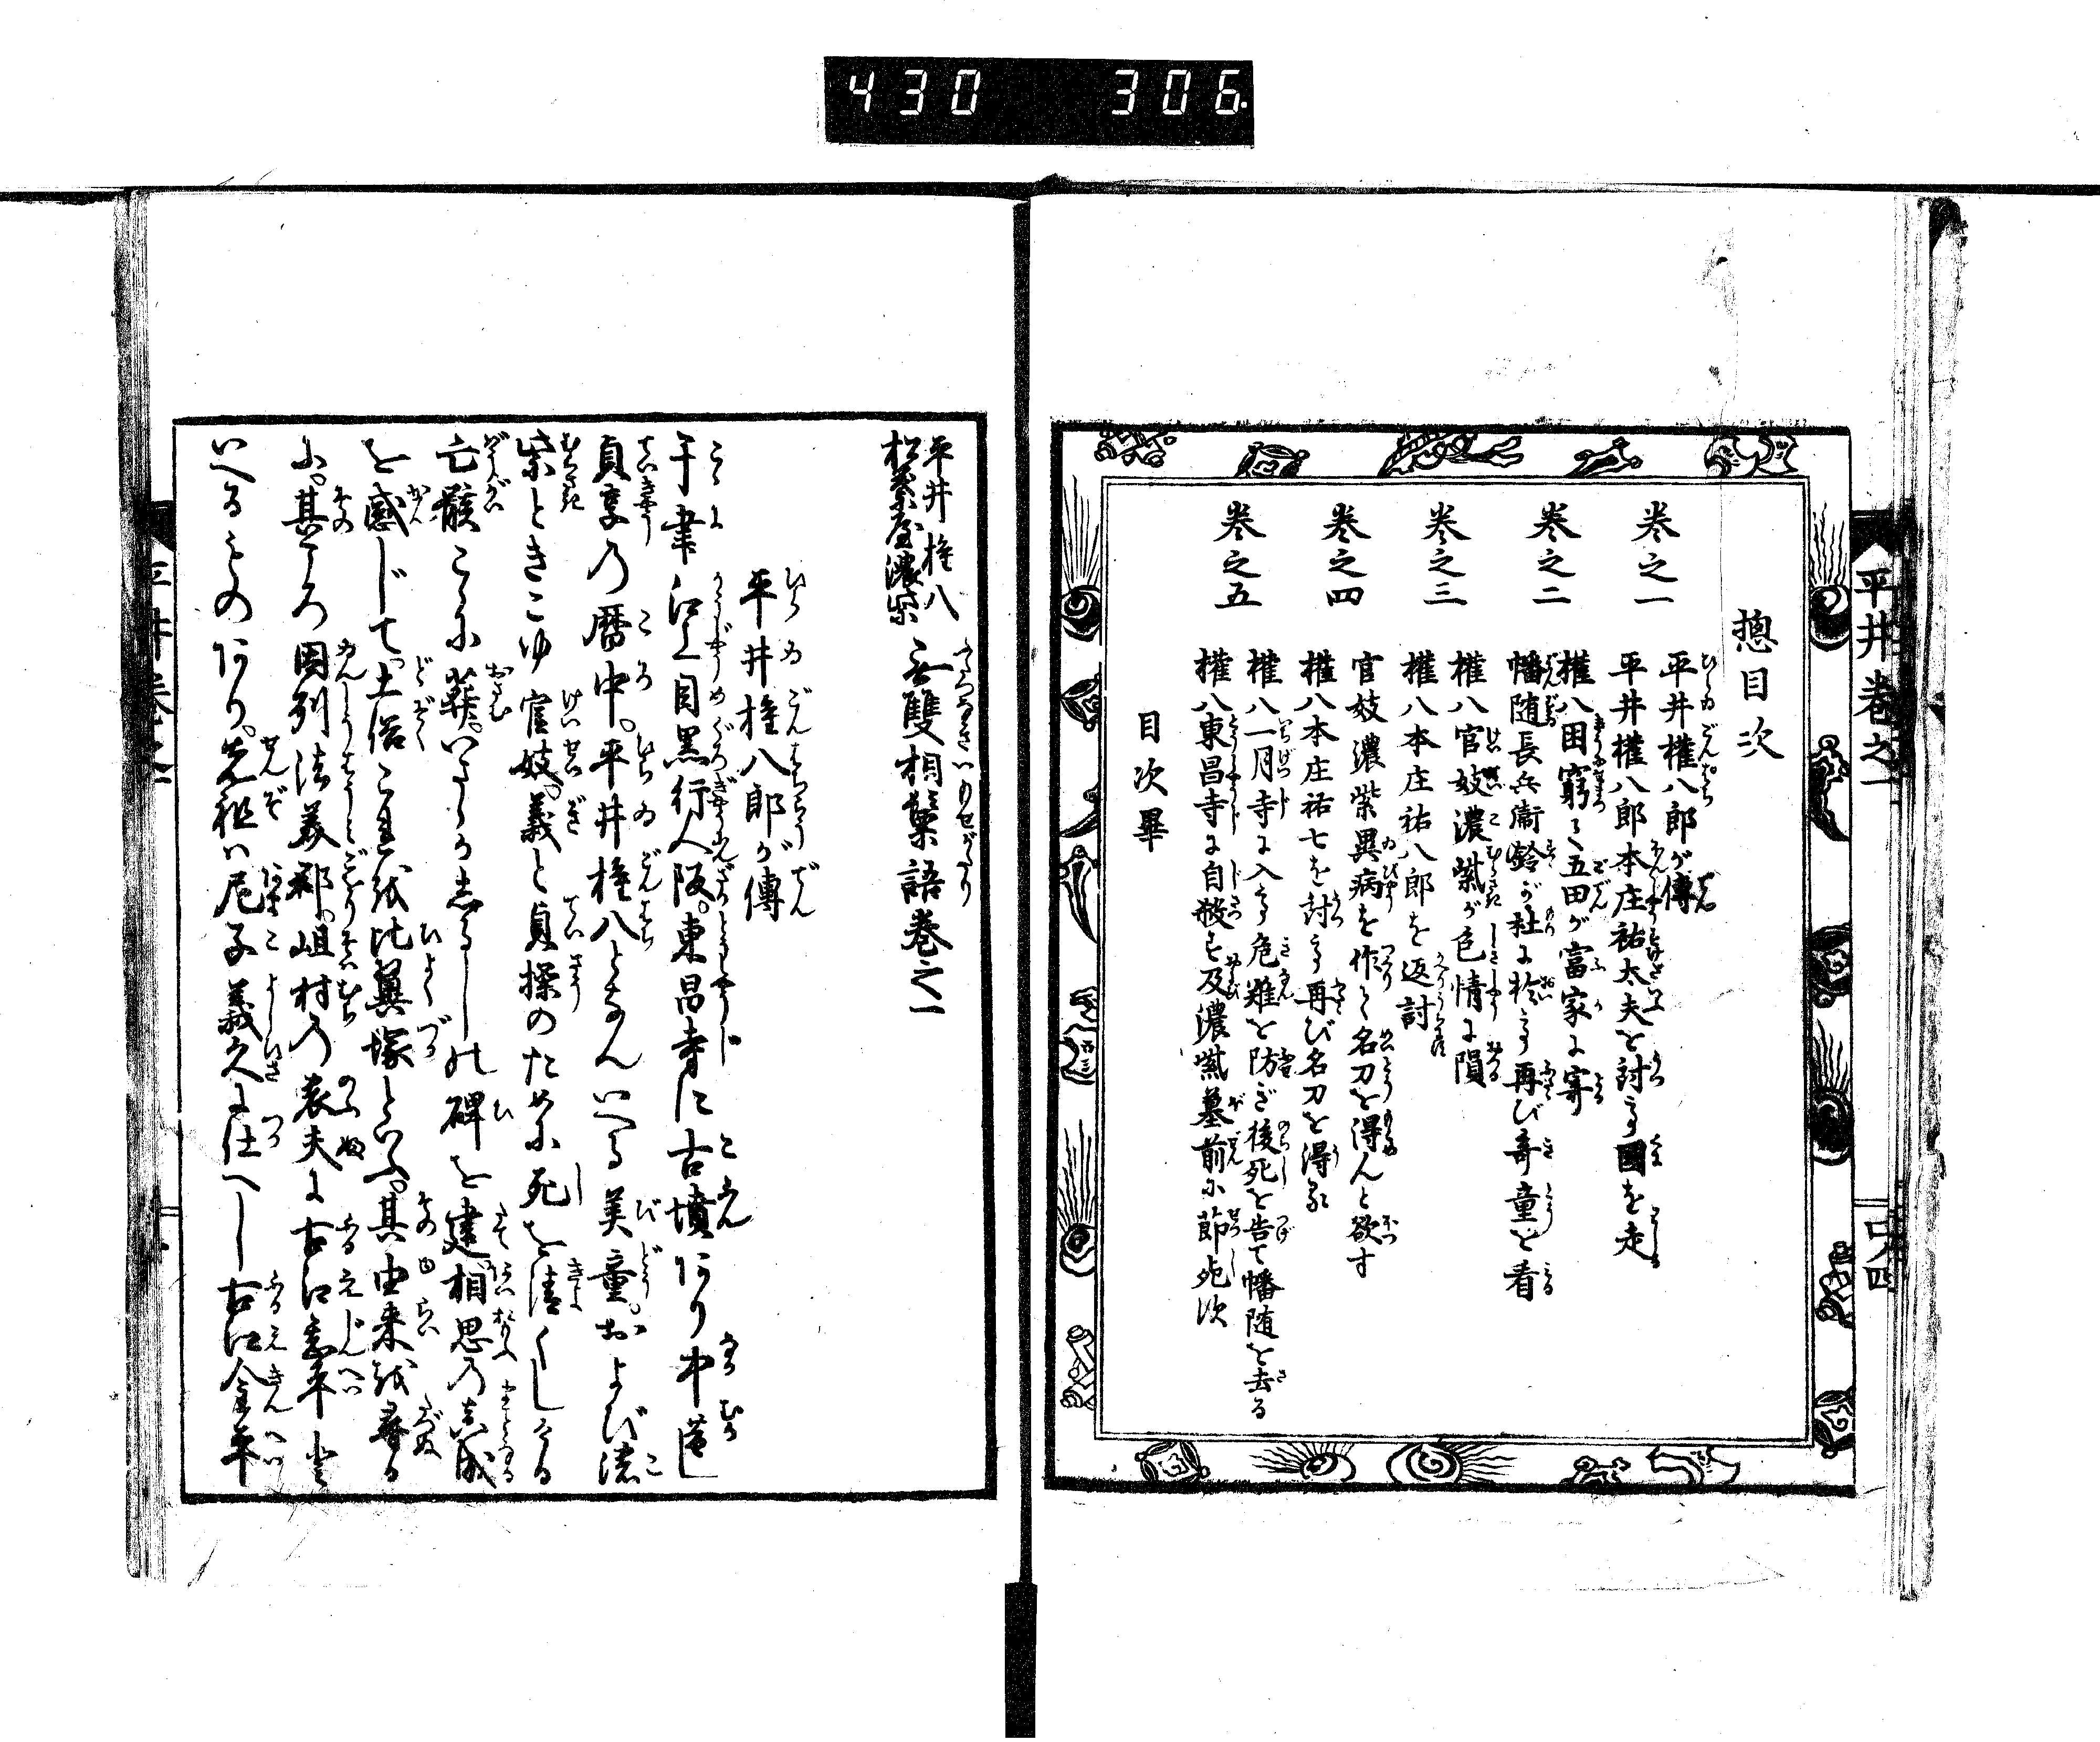 430 306
平井巻之一
口ノ四
摠目次
巻之一
平井權八郎が傳
平井權八郎本庄祐太夫を討て國を走
巻之二
權八困窮て五田が富家に寄
幡随長兵衞鈴が杜に於て再び竒童を看
巻之三
權八官妓濃紫が色情に隕
權八本庄祐八郎を返討
巻之四
官妓濃紫異病を作て名刀を得んと欲す
權八本庄祐七を討て再び名刀を得る
巻之五
權八一月寺に入て危難を防ぎ後死を告て幡随を去る
權八東昌寺に自殺す及濃紫墓前に節死次
目次畢
平井権八
濃紫
雙相槩語巻之一
平井権八郎が傳
于聿江上目黒行人阪。東昌寺に古墳あり中葢し
貞享の暦中。平井権八となんいへる美童。およびに濃
紫ときこゆ官妓。義と貞操のために死を清くしける
亡骸こゝに葬。いさゝかしるしの碑を建。相思の真誠
を感じて。土俗これを比翼塚といふ。其由来を尋る
に。其ころ因列法美郡。岨村の農夫に古江甚平と
いへるものあり。先祖は尼子義久に仕へし古江金平